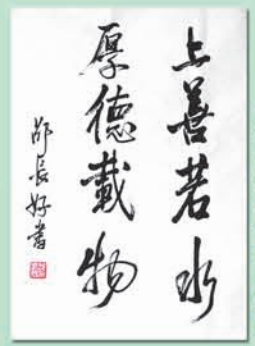 上善若水
厚德載物
邵長好書